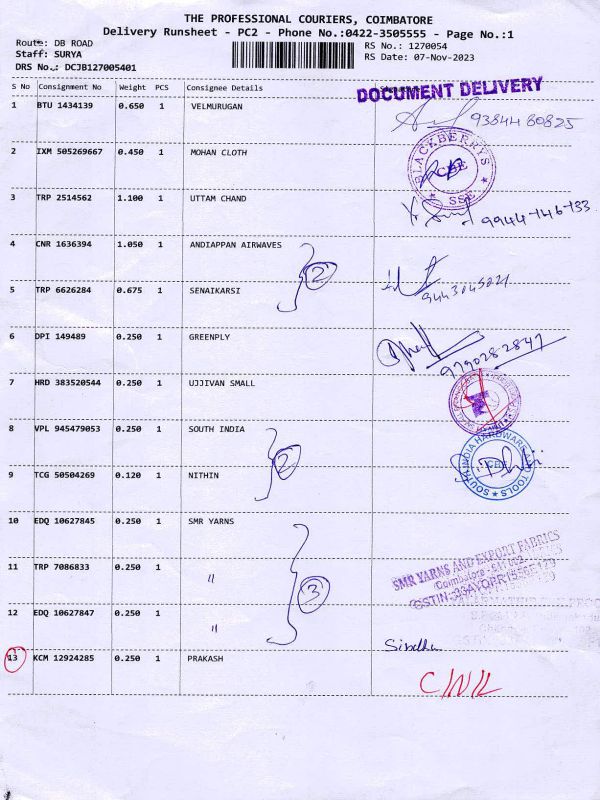 THE PROFESSIONAL COURIERS, COIMBATORE
Delivery Runsheet - PC2 - Phone No.:0422-3505555 - Page No.:1
Route: DB ROAD
Staff: SURYA
DRS No.: DCJB127005401
RS No.: 1270054
RS Date: 07-Nov-2023
S No Consignment No Weight PCS Consignee Details
DOCUMENT DELIVERY
1 BTU 1434139 0.650 1 VELMURUGAN
9384460825
2 IXM 505269667 0.450 1 MOHAN CLOTH
BLACKBERRYS CBE SSE
3 TRP 2514562 1.100 1 UTTAM CHAND
9944-146-133
4 CNR 1636394 1.050 1 ANDIAPPAN AIRWAVES
2
5 TRP 6626284 0.675 1 SENAIKARSI
6 DPI 149489 0.250 1 GREENPLY
979028-2847
7 HRD 383520544 0.250 1 UJJIVAN SMALL
8 VPL 945479053 0.250 1 SOUTH INDIA
2
SOUTH INDIA HARDWARE AND TOOLS CBE
9 TCG 50504269 0.120 1 NITHIN
10 EDQ 10627845 0.250 1 SMR YARNS
11 TRP 7086833 0.250 1 "
3
SMR YARNS AND EXPORT FABRICS
Coimbatore
12 EDQ 10627847 0.250 1 "
13 KCM 12924285 0.250 1 PRAKASH